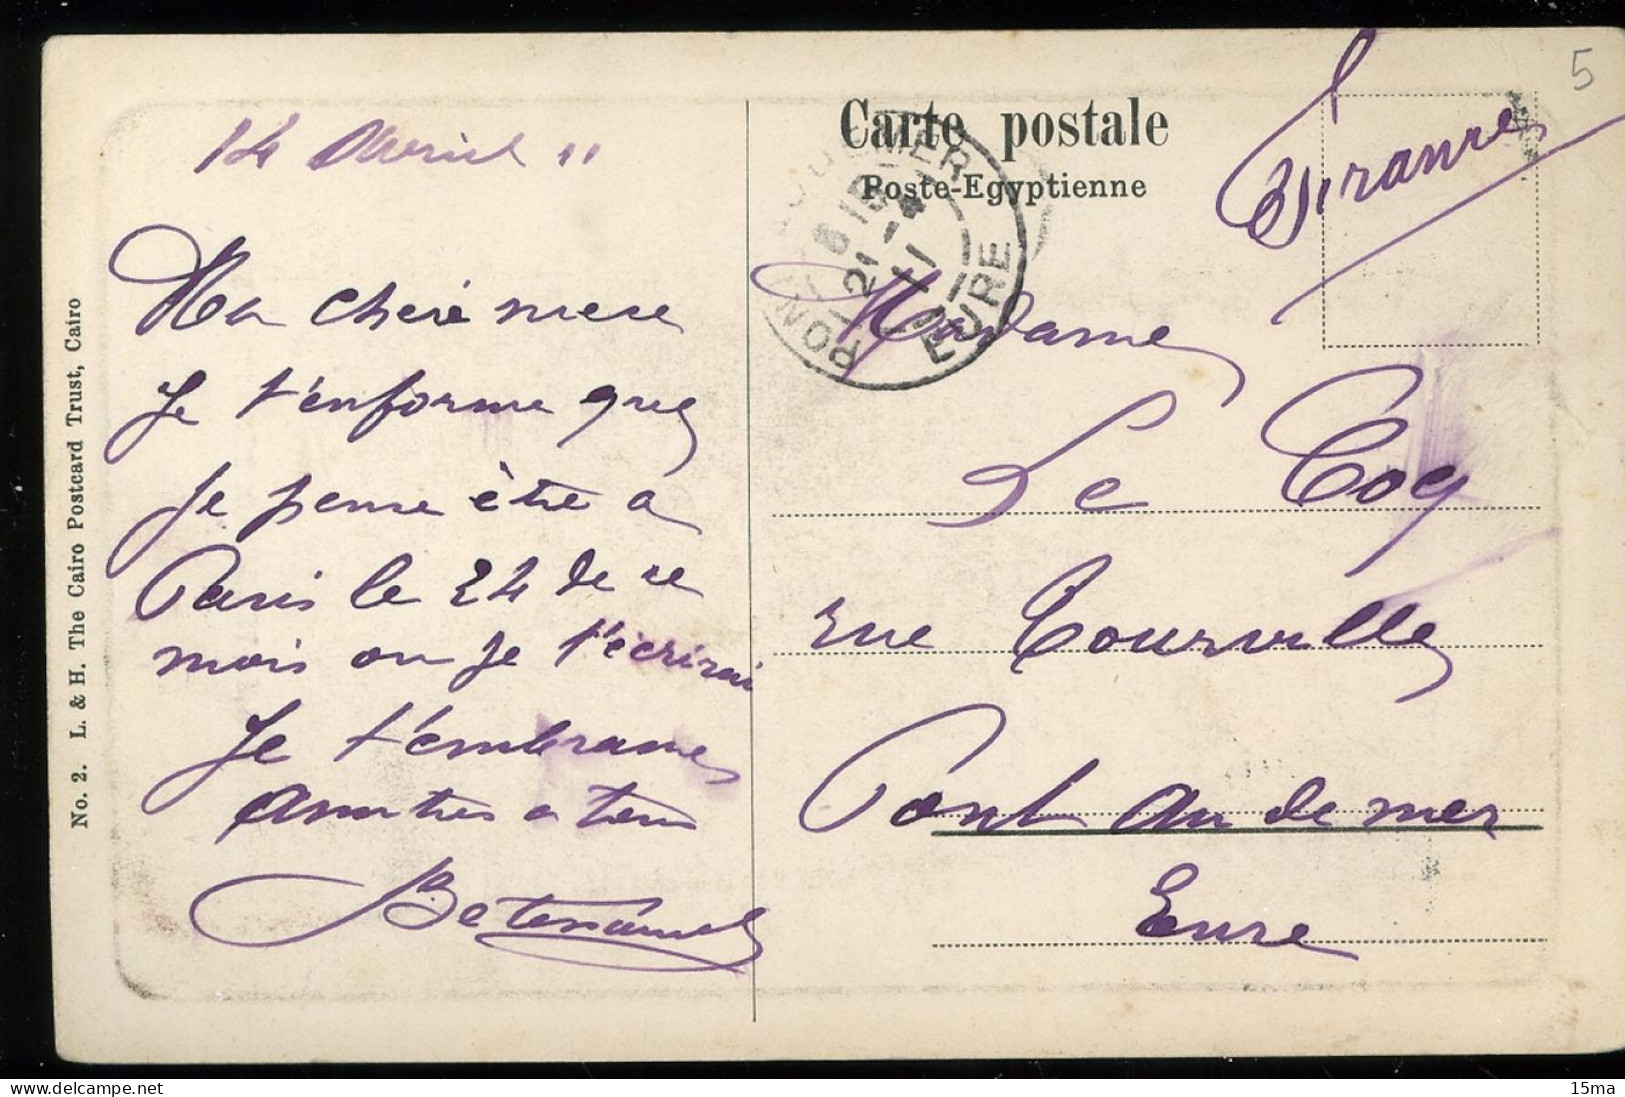 5
Carte postale
Poste-Egyptienne
PONT-AUDEMER
8 15
21 - 4
11
EURE
14 Avril 11
Ma chere mere
Je t'enforme que
je pense être a
Paris le 24 de ce
mois ou je t'écrirai
Je t'embrasse
a toi
Madame
Le Coq
rue Tourville
Pont Au de mer
Eure
No. 2. L. & H. The Cairo Postcard Trust, Cairo
15ma